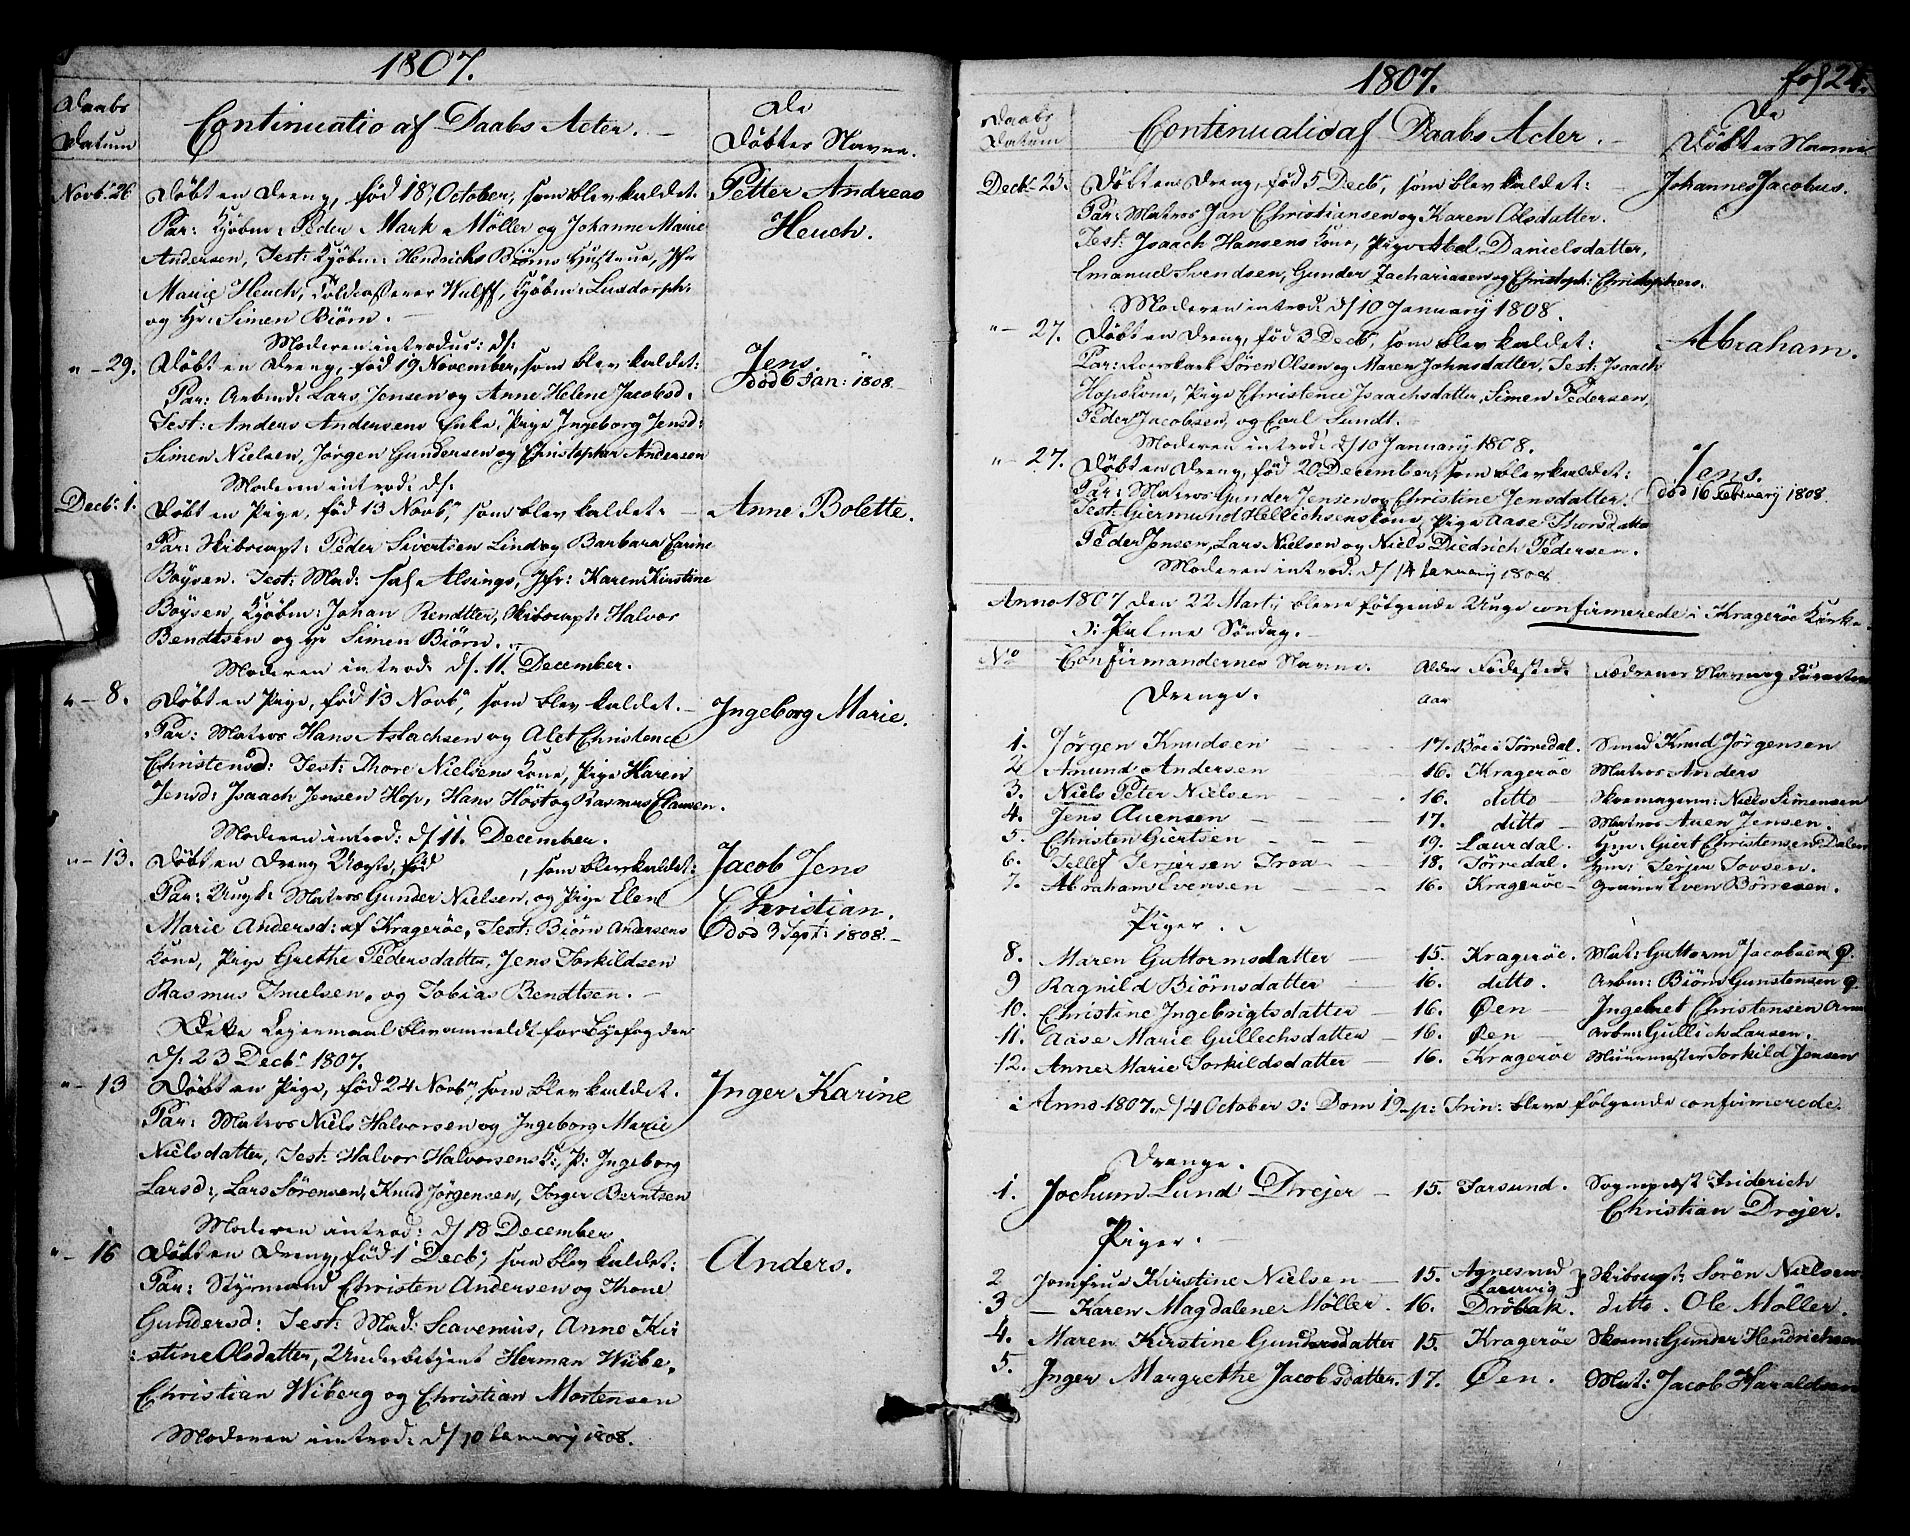 1807.
Daabs
Datum
Continuatio af Daabs Acter.
De
Döbtes Navne.
Novb: 26
Döbt en Dreng, fød 18 October, som blev kaldet:
Petter Andreas
Heuch.
Par: Kjøbm: Peder Mark Möller og Johanne Marie
Andersen, Test: Kjøbm: Hendrich Biørns Hustrue, Jfr
Marie Heuch, Toldcasserer Wulff, Kjøbm: Lusdorph
og Hr: Simen Biørn.
Moderen introduc: d/:
" - 29.
Döbt en Dreng, fød 19 November, som blev kaldet:
Jens
død 6 Jan: 1808.
Par: Arbmd: Lars Jensen og Anne Helene Jacobsd:
Test: Anders Andersens Enke, Pige Ingeborg Jensd:
Simen Nielsen, Jørgen Gundersen og Christopher Andersen
Moderen introd: d/:
Decb: 1.
Döbt en Pige, fød 13 Novb:, som blev kaldet:
Anne Bolette.
Par: Skibscapt: Peder Sivertsen Lind og Barbara Carine
Boysen. Test: Mad: sal: Alsings, Jfr: Karen Kirstine
Boysen, Kjøbm: Johan Rendtler, Skibscapt: Halvor
Bendtsen og Hr Simen Biørn.
Moderen introd: d/. 11 December.
" - 8.
Döbt en Pige, fød 13 Novb:, som blev kaldet.
Ingeborg Marie.
Par: Matros Hans Aslachsen og Alet Christence
Christensd: Test: Thore Nielsens Kone, Pige Karen
Jensd: Isaach Jensen Hop, Hans Höst og Rasmus Clausen.
Moderen introd: d/ 11. December.
" - 13.
Döbt en Dreng Uægte, fød , som blev kaldet:
Jacob Jens
Christian.
død 3 Sept: 1808.
Par: Ungk: Matros Gunder Nielsen, og Pige Elen
Marie Andersd: af Kragerøe, Test: Biørn Andersens
Kone, Pige Grethe Pedersdatter, Jens Torkildsen
Rasmus Truelsen, og Tobias Bendtsen.
Dette Lejermaal blev anmeldt for Byefogden
d/: 23 Decb: 1807.
" - 13
Döbt en Pige, fød 24 Novb:, som blev kaldet.
Inger Karine
Par: Matros Niels Halvorsen og Ingeborg Marie
Nielsdatter, Test: Halvor Halvorsens K:, P: Ingeborg
Larsd:, Lars Sörensen, Knud Jörgensen, Torger Berntsen
Moderen introd: d/ 18 December
" - 16
Döbt en Dreng, fød 1 Decb:, som blev kaldet:
Anders.
Par: Styrmand Christen Andersen og Thone
Gundersd: Test: Mad: Scavenius, Anne Kir
:stine Olsdatter, Underbetjent Herman Wibe,
Christian Wiberg og Christian Mortensen
Moderen introd: d/ 10 January 1808.
1807.
fol 24.
Daabs
Datum
Continuatio af Daabs Acter.
De
Döbtes Navne
Decb: 25.
Döbt en Dreng, fød 5 Decb:, som blev kaldet:
Johannes Jacobus.
Par: Matros Jan Christiansen og Karen Olsdatter.
Test: Isaach Hansens Kone, Pige Abel Danielsdatter,
Emanuel Svendsen, Gunder Zachariasen og Christoph: Christophers.
Moderen introd: d/ 10 January 1808.
" - 27.
Döbt en Dreng, fød 3 Decb:, som blev kaldet:
Abraham.
Par: Loerskarl Sören Olsen og Maren Johnsdatter, Test: Isaach
Hops Kone, Pige Christence Isaachsdatter, Simen Pedersen,
Peder Jacobsen, og Carl Sundt.
Moderen introd: d/ 10 January 1808.
" - 27.
Döbt en Dreng, fød 20 December, som blev kaldet:
Jens.
død 16 February 1808.
Par: Matros Gunder Jensen og Christine Jensdatter.
Test: Giermund Hellichsens Kone, Pige Aase Thorsdatter
Peder Jensen, Lars Nielsen og Niels Diedrich Pedersen.
Moderen introd: d/ 14 January 1808
Anno 1807 den 22 Martij bleve følgende Unge confirmerede i Kragerøe Kirke.
ɔ: Palme Söndag.
No
Confirmandernes Navne.
Alder
Aar
Fødested.
Fædrenes Navne og Næringsstand
Drenge.
1. Jörgen Knudsen 17. Böe i Tørredal. Smed Knud Jörgensen
2 Amund Andersen 16. Kragerøe Matros Anders
3. Niels Peter Nielsen 16. ditto Skomagerm: Niels Simensen
4. Jens Auensen 17. ditto Matros Auen Jensen.
5. Christen Giertsen 19. Laurdal. Hm: Giert Christensen Dalen
6. Tellef Terjersen Troa 18. Tørredal. Hm: Terjer Tovsen.
7. Abraham Evensen 16. Kragerøe Graver Even Börresen.
Piger.
8. Maren Guttormsdatter 15. Kragerøe. Mat: Guttorm Jacobsen
9 Ragnild Biörnsdatter 16. ditto. Arbm: Biörn Gunstensen
10. Christine Ingebrigtsdatter 16. Øen Ingebret Christensen Arm
11. Aase Marie Gullechsdatter 16. Øen Arbm: Gullich Larsen.
12. Anne Marie Torkildsdatter 16. Kragerøe Muurmester Torkild Jensen
i Anno 1807. d/ 4 October ɔ: Dom 19. p: Trin: bleve følgende confirmerede.
Drenge.
1. Jochum Lund Drejer 15. Farsund. Sognepræst Friderich
Christian Drejer.
Piger.
2 Jomfrue Kirstine Nielsen 15. Agnes ved
Laurvig Skibscapt: Sören Nielsen
3 — Karen Magdalene Møller. 16. Dröbak. ditto. Ole Møller.
4. Maren Kirstine Gundersdatter 15. Kragerøe Skom: Gunder Hendrichsen
5. Inger Margrethe Jacobsdatter. 17. Øen. Mat: Jacob Haraldsen